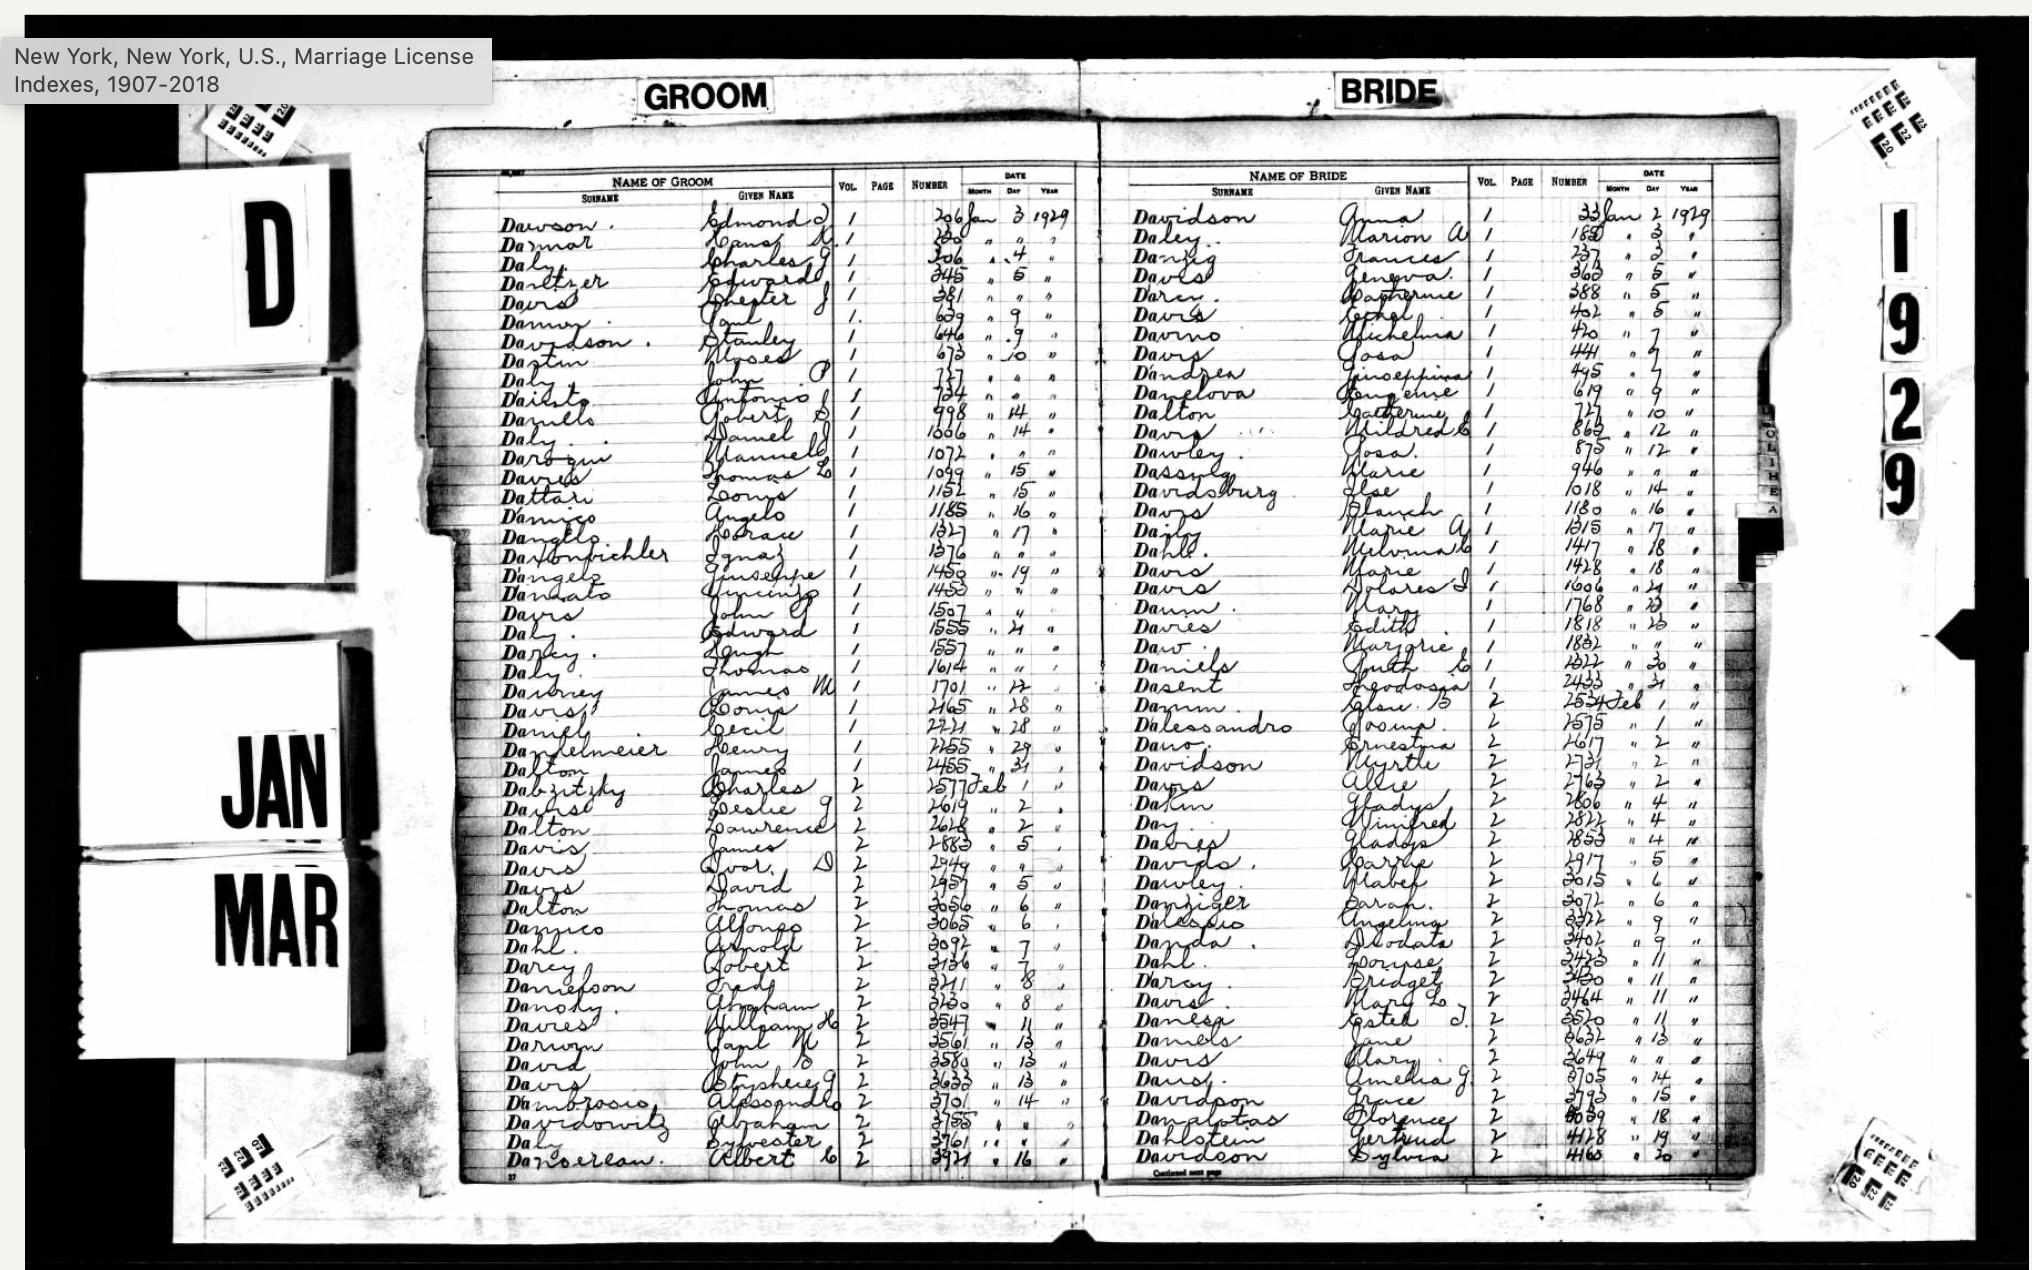 New York, New York, U.S., Marriage License
Indexes, 1907-2018
GROOM
BRIDE
D
JAN
MAR
1
9
2
9
NAME OF GROOM
SURNAME GIVEN NAME VOL. PAGE NUMBER DATE MONTH DAY YEAR
Dawson. Edmond J 1 206 Jan 3 1929
Hans 1 " " "
Daly. Charles J 1 306 " 4 "
Edward J 1 345 " 5 "
Davis Chester J 1 381 " " "
Paul 1. 629 " 9 "
Davidson. Stanley 1 646 " 9 "
Dastin Moses 1 673 " 10 "
Daly John P 1 727 " " "
Antonio 1 734 " " "
Robert S 1 998 " 14 "
Daly. Daniel J 1 1006 " 14 "
Manuel 1 1072 " " "
Davies Thomas L 1 1099 " 15 "
Dattari Louis 1 1152 " 15 "
Damico Angelo 1 1185 " 16 "
Dangelo Horace 1 1327 " 17 "
Ignaz 1 1376 " " "
Dangelo Giuseppe 1 1450 " 19 "
Vincenzo 1 1453 " " "
Davis John J 1 1507 " " "
Daly. Edward 1 1555 " 21 "
Darcy. Hugh 1 1557 " " "
Daly. Thomas 1 1614 " " "
James M 1 1701 " 22 "
Davis Louis 1 2165 " 28 "
Daniel Cecil 1 2221 " 28 "
Dannelmeier Henry 1 2255 " 29 "
Dalton James 1 2455 " 31 "
Dabzitzky Charles 2 2577 Feb 1 "
Leslie J 2 2619 " 2 "
Dalton Lawrence 2 2628 " 2 "
Davis James 2 2883 " 5 "
Davis Ivor. D 2 2949 " " "
Davis David 2 2957 " 5 "
Dalton Thomas 2 3056 " 6 "
Damico Alfonso 2 3065 " 6 "
Dahl. Arnold 2 3092 " 7 "
Darcy Robert 2 3136 " 7 "
Danielson Fred 2 3211 " 8 "
Abraham 2 3230 " 8 "
Davies William H 2 3547 " 11 "
Darwin Paul M 2 3561 " 13 "
David John B 2 3580 " 13 "
Davis 2 3633 " 13 "
Dambrosio Alessandro 2 3701 " 14 "
Davidowitz Abraham 2 3755 " " "
Daly Sylvester 2 3761 " " "
Dansereau. Albert C 2 3921 " 16 "
27
NAME OF BRIDE
SURNAME GIVEN NAME VOL. PAGE NUMBER DATE MONTH DAY YEAR
Davidson Anna 1 33 Jan 2 1929
Daley.. Marion A 1 " 3 "
Danzig Frances 1 237 " 3 "
Davis Geneva. 1 363 " 5 "
Daren. Catherine 1 388 " 5 "
Davis Ethel 1 402 " 5 "
Davino Michelina 1 420 " 7 "
Davis Rosa 1 441 " 7 "
Dandrea Giuseppina 1 495 " 7 "
Danelova Eugenie 1 619 " 9 "
Dalton Catherine 1 727 " 10 "
Davis Mildred C 1 863 " 12 "
Dawley. Rosa. 1 875 " 12 "
Dassing Marie 1 946 " " "
Davidsburg Ilse 1 1018 " 14 "
Davis Blanch 1 1180 " 16 "
Daily Marie A 1 1315 " 17 "
Dahl. Melvina C 1 1417 " 18 "
Davis Marie 1 1428 " 18 "
Davis Dolores I 1 1606 " 21 "
Daum. Mary 1 1768 " 23 "
Davies Edith 1 1818 " 23 "
Daw. Marjorie 1 1832 " " "
Daniels Ruth C 1 2322 " 30 "
Dasent Theodosia 1 2433 " 31 "
Elsie. B 2 2534 Feb 1 "
Dalessandro 2 2575 " 1 "
Ernestina 2 2617 " 2 "
Davidson Myrtle 2 2731 " 2 "
Davis Alice 2 2763 " 2 "
Dakin Gladys 2 2806 " 4 "
Day. Winifred 2 2822 " 4 "
Davies Gladys 2 2853 " 4 "
Davids. Carrie 2 2917 " 5 "
Dawley. Mabel 2 3015 " 6 "
Danziger Sarah. 2 3072 " 6 "
Dalessio Angelina 2 3322 " 9 "
Danda. Deodata 2 3402 " 9 "
Dahl. Louise 2 3423 " 11 "
Darcy. Bridget 2 3430 " 11 "
Davis. Mary L 2 3464 " 11 "
Danesa Ester J. 2 3520 " 11 "
Daniels Jane 2 3632 " 13 "
Davis Mary. 2 3649 " " "
Amelia J. 2 3705 " 14 "
Davidson Grace 2 3793 " 15 "
Danalotas Florence 2 4039 " 18 "
Dahlstein Gertrud 2 4128 " 19 "
Davidson Sylvia 2 4165 " 20 "
Continued next page